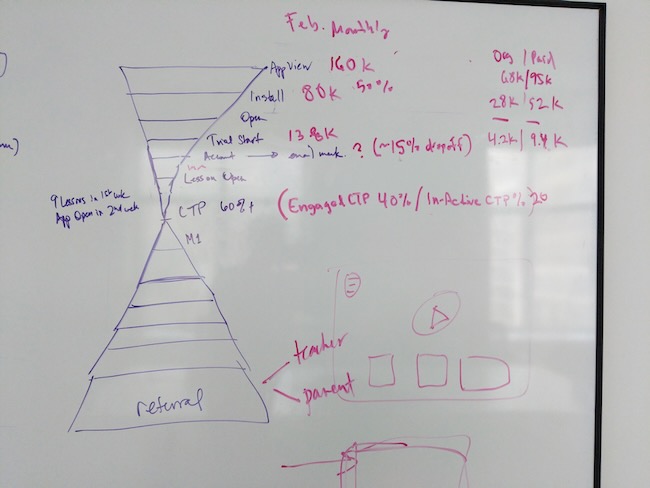 Feb. Monthly
App View 160k
Org / Paid
68k/95k
Install 80k 50%
28k/52k
Open
Trial Start 13.8k
Account → email mark. ? (~15% dropoff)
4.2k/9.4k
Lesson Open
9 Lessons in 1st wk
App Open in 2nd week
CTP 60%+ (Engaged CTP 40% / In-Active CTP% 20
M1
teacher
parent
referral